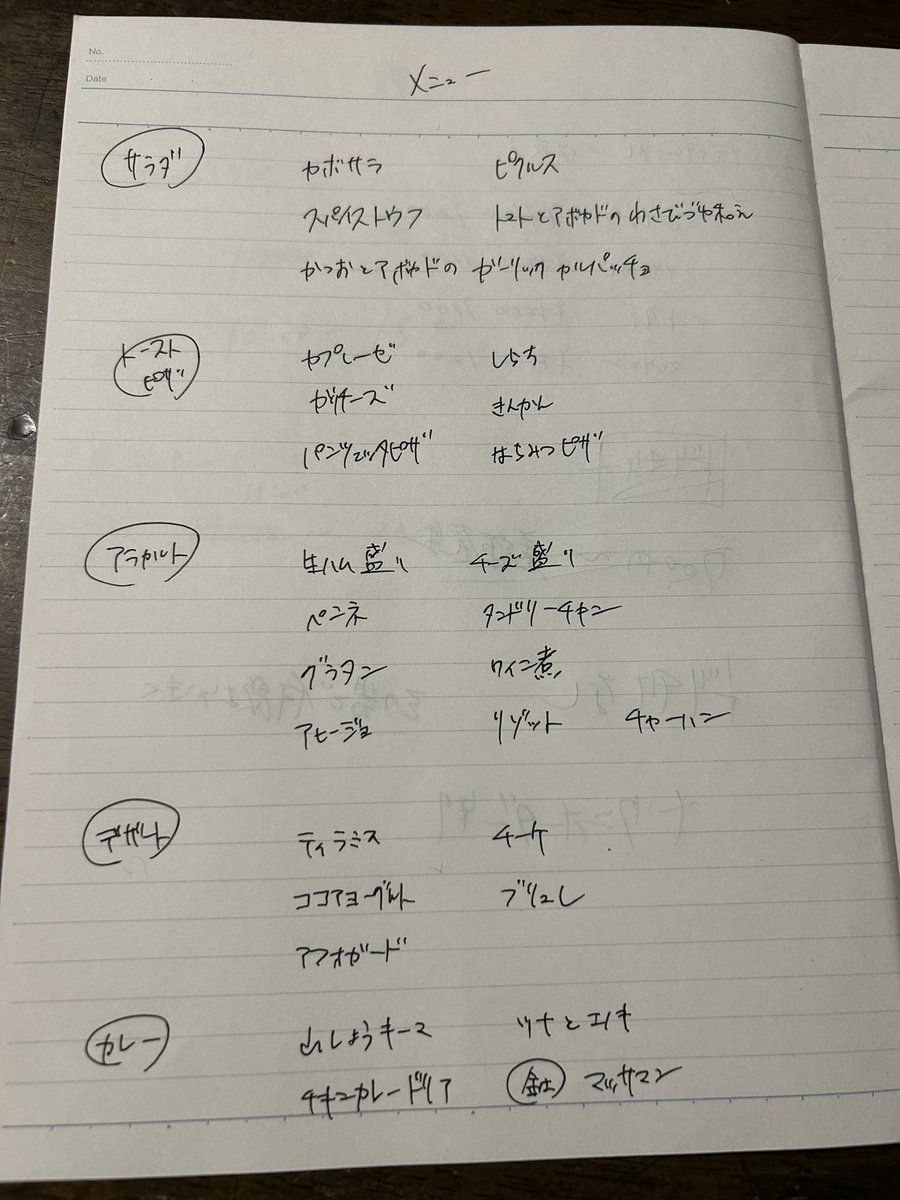 No.
Date
メニュー
サラダ
カボサラ ピクルス
スパイストウフ トマトとアボカドのわさびづけ和え
かつおとアボカドの ガーリック カルパッチョ
トースト
ピザ
カプレーゼ しらす
ガリチーズ きんかん
パンツェッタピザ はちみつピザ
アラカルト
生ハム盛り チーズ盛り
ペンネ タンドリーチキン
グラタン ワイン煮
アヒージョ リゾット チャーハン
デザート
ティラミス チーケ
ココアヨーグルト ブリュレ
アフォガード
カレー
さんしょうキーマ ツナとエノキ
チキンカレードリア マッサマン